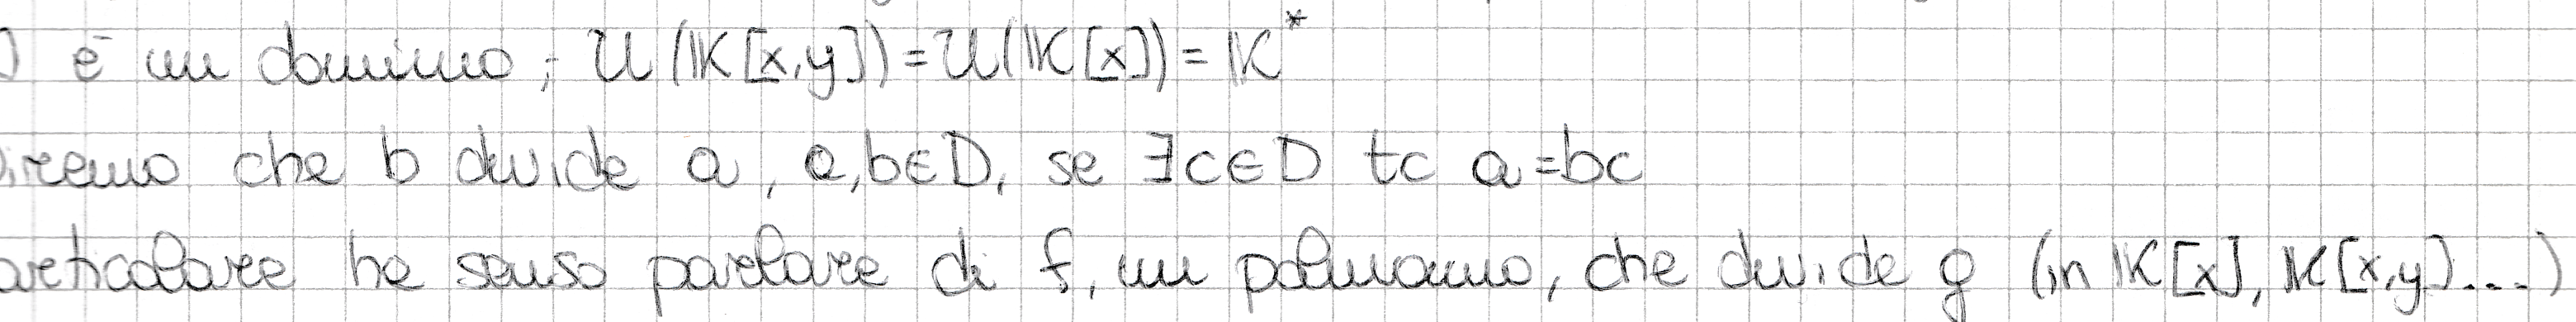 ] è un dominio; U(𝕂[x,y])=U(𝕂[x])=𝕂*
Diremo che b divide a, a,b∈D, se ∃c∈D tc a=bc
articolare ha senso parlare di f, un polinomio, che divide g (in 𝕂[x], 𝕂[x,y]...)